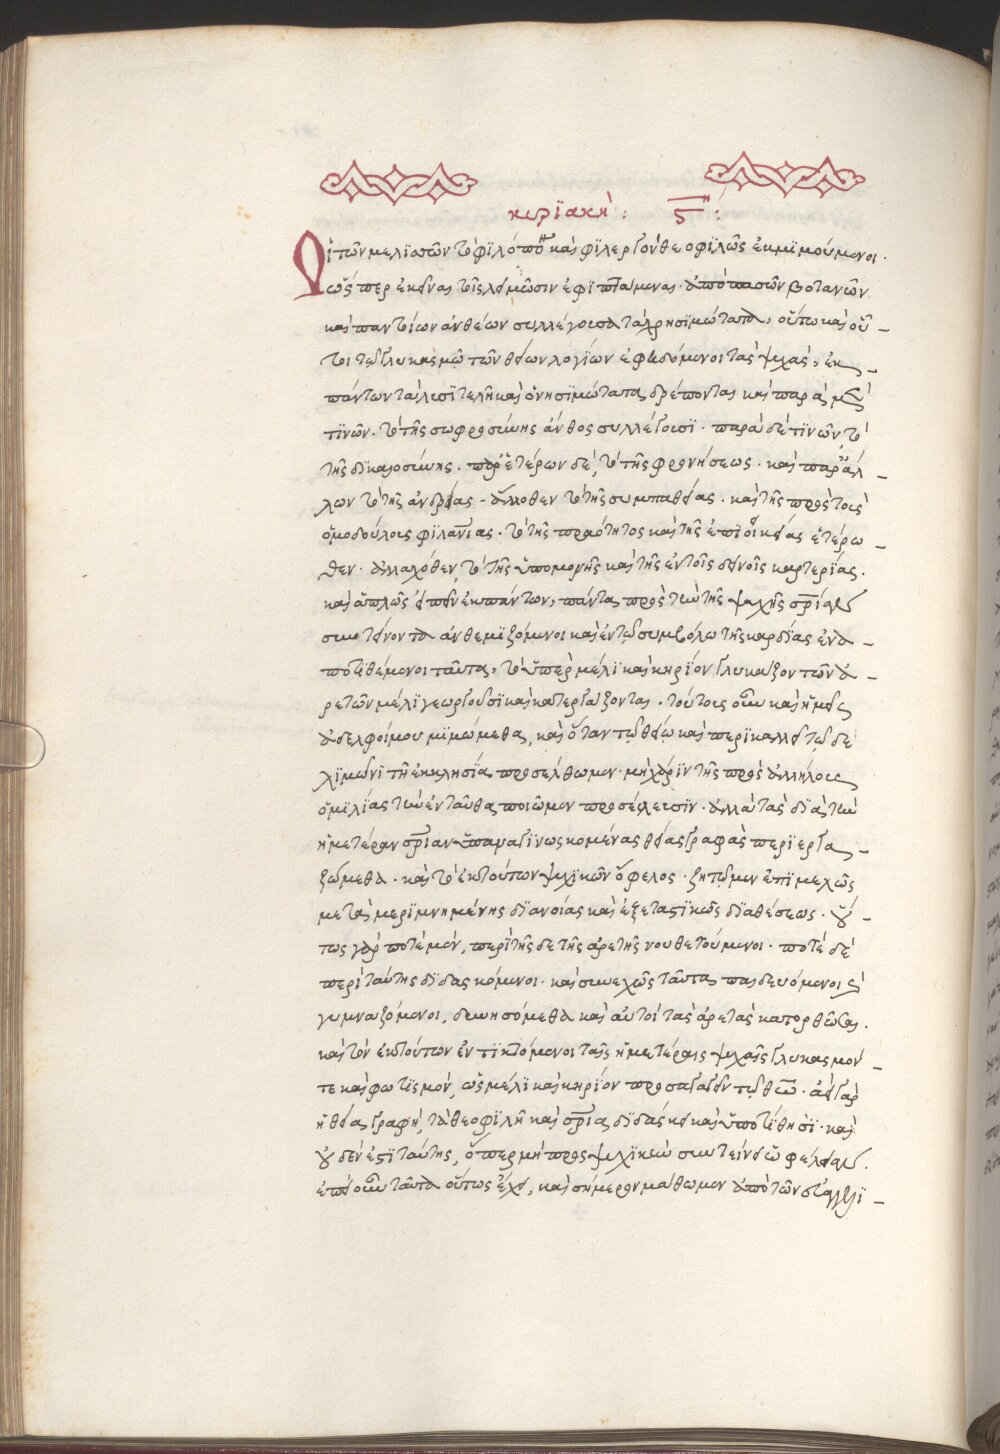 κυρϊακὴ : ϛ :
Οἱ τῶν μελϊσσῶν τὸ φϊλόπονον καὶ φϊλεργὸν θεοφϊλῶς ἐκμϊμούμενοι ·
ὥσπερ ἐκεῖναι τοῖς λειμῶσιν ἐφϊπτάμεναι · ἀπὸ πασῶν βοτανῶν
καὶ παντίων ἀνθέων συλλέγουσαι τὰ χρησϊμώτατα, οὕτω καὶ οὗ –
τοι τῶ γλυκασμῶ τῶν θείων λογίων ἐφϊζόμενοι τὰς ψυχὰς, ἐκ –
πάντων τὰ λυσϊτελῆ καὶ ὀνησϊμώτατα δρέπονται καὶ παρὰ μέν
τϊνων · τὸ τῆς σωφροσύνης ἄνθος συλλέγουσϊ · παρὰ δέ τϊνων, τὸ
τῆς δϊκαιοσύνης · παρ' ἑτέρων δὲ, τὸ τῆς φρονήσεως · καὶ παρ' ἄλ –
λων τὸ τῆς ἀνδρείας – ἄλλοθεν τὸ τῆς συμπαθείας · καὶ τῆς πρὸς τοὺς
ὁμοδούλους φϊλανίας · τὸ τῆς πραότητος καὶ τῆς ἐπϊοικείας ἑτέρω –
θεν · ἀλλαχόθεν, τὸ τῆς ὑπομονῆς καὶ τῆς ἐν τοῖς δεινοῖς καρτερΐας ·
καὶ ἁπλῶς εἰπεῖν ἐκ πάντων, πάντα πρὸς τὴν τῆς ψυχῆς σρίαν
συντείνοντα ἀνθεμϊζόμενοι καὶ ἐν τῶ συμβόλω τῆς καρδίας ἐνα –
ποτϊθέμενοι ταῦτα, τὸ ὑπὲρ μέλϊ καὶ κηρίον γλυκάζον τῶν ἀ –
ρετῶν μέλϊ γεωργοῦσϊ καὶ κατεργάζονται · τούτους οὖν καὶ ἡμεῖς
ἀδελφοί μου μϊμώμεθα, καὶ ὅταν τῶ θείω καὶ περϊκαλλεῖ τῶδε
λϊμῶνϊ τῆ ἐκκλησίᾳ προσέλθωμεν · μὴ χάρϊν τῆς πρὸς ἀλλήλους
ὁμϊλίας τὴν ἐνταῦθα ποιῶμεν προσέλευσϊν · ἀλλὰ τὰς δϊὰ τὴν
ἡμετέραν σρίαν ὑπαναγϊνωσκομένας θείας γραφὰς περϊεργα –
ζώμεθα · καὶ τὸ ἐκ τούτων ψυχϊκὸν ὄφελος · ζητῶμεν ἐπϊμελῶς
μετὰ μερϊμνημένης δϊανοίας καὶ ἐξεταστϊκῆς δϊαθέσεως · οὕ –
τως γὰρ ποτὲ μὲν, περὶ τῆσδε τῆς ἀρετῆς νουθετούμενοι · ποτὲ δὲ
περὶ ταύτης δϊδασκόμενοι · καὶ συνεχῶς ταῦτα παιδευόμενοι καὶ
γυμναζόμενοι, δυνησόμεθα καὶ αὐτοὶ τὰς ἀρετὰς κατορθῶσαι ·
καὶ τὸν ἐκ τούτων ἐντϊκτόμενοι ταῖς ἡμετέραις ψυχαῖς γλυκασμόν
τε καὶ φωτϊσμὸν, ὡς μέλϊ καὶ κηρίον προσαγαγεῖν τῶ θεῶ · ἀεὶ γὰρ
ἡ θεία γραφὴ, τὰ θεοφϊλῆ καὶ σρια δϊδάσκει καὶ ὑποτΐθησϊ · καὶ
οὐδέν ἐστϊ ταύτης, ὅπερ μὴ πρὸς ψυχϊκὴν συντείνει ὠφέλειαν ·
ἐπεὶ οὖν ταῦτα οὕτως ἔχει, καὶ σήμερον μάθωμεν ἀπὸ τῶν εὐαγγελϊ –